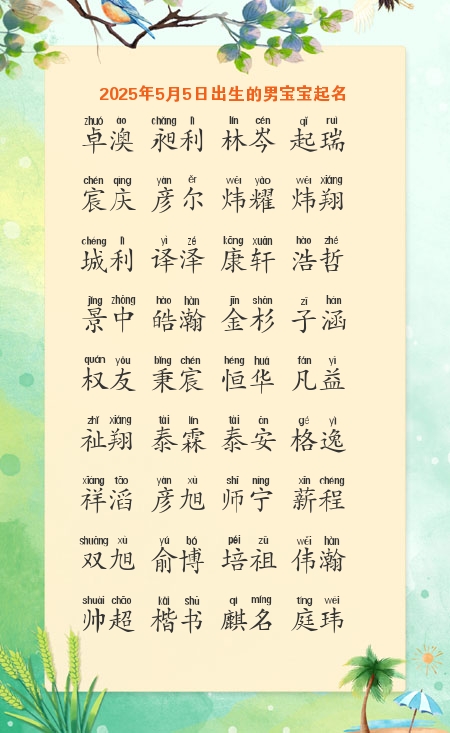 2025年5月5日出生的男宝宝起名
zhuó ào chǎng lì lín cén qǐ ruì
卓澳 昶利 林岑 起瑞
chén qìng yàn ěr wěi yào wěi xiáng
宸庆 彦尔 炜耀 炜翔
chéng lì yì zé kāng xuān hào zhé
城利 译泽 康轩 浩哲
jǐng zhōng hào hàn jīn shān zǐ hán
景中 皓瀚 金杉 子涵
quán yǒu bǐng chén héng huá fán yì
权友 秉宸 恒华 凡益
zhǐ xiáng tài lín tài ān gé yì
祉翔 泰霖 泰安 格逸
xiáng tāo yàn xù shī níng xīn chéng
祥滔 彦旭 师宁 薪程
shuāng xù yú bó péi zǔ wěi hàn
双旭 俞博 培祖 伟瀚
shuài chāo kǎi shū qí míng tíng wěi
帅超 楷书 麒名 庭玮